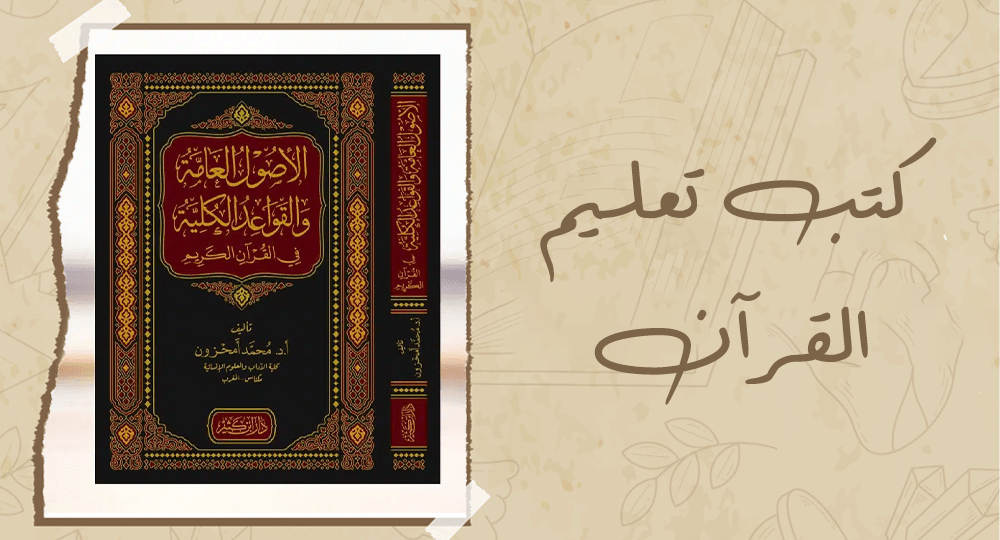 كتب تعليم
القرآن
الأُصُوْلُ العَامَّةُ
وَالقَوَاعِدُ الكُلِّيَّةُ
فِي القُرْآنِ الكَرِيمِ
تأليف
أ.د. مُحَمَّد أَمَحْزُون
كلية الآداب والعلوم الإنسانية
مكناس - المغرب
دَارُ ابْنِ كَثِيْر
الأُصُوْلُ العَامَّةُ وَالقَوَاعِدُ الكُلِّيَّةُ
فِي
القُرْآنِ
الكَرِيمِ
تأليف
أ.د. مُحَمَّد أَمَحْزُون
دَارُ ابْنِ كَثِيْر